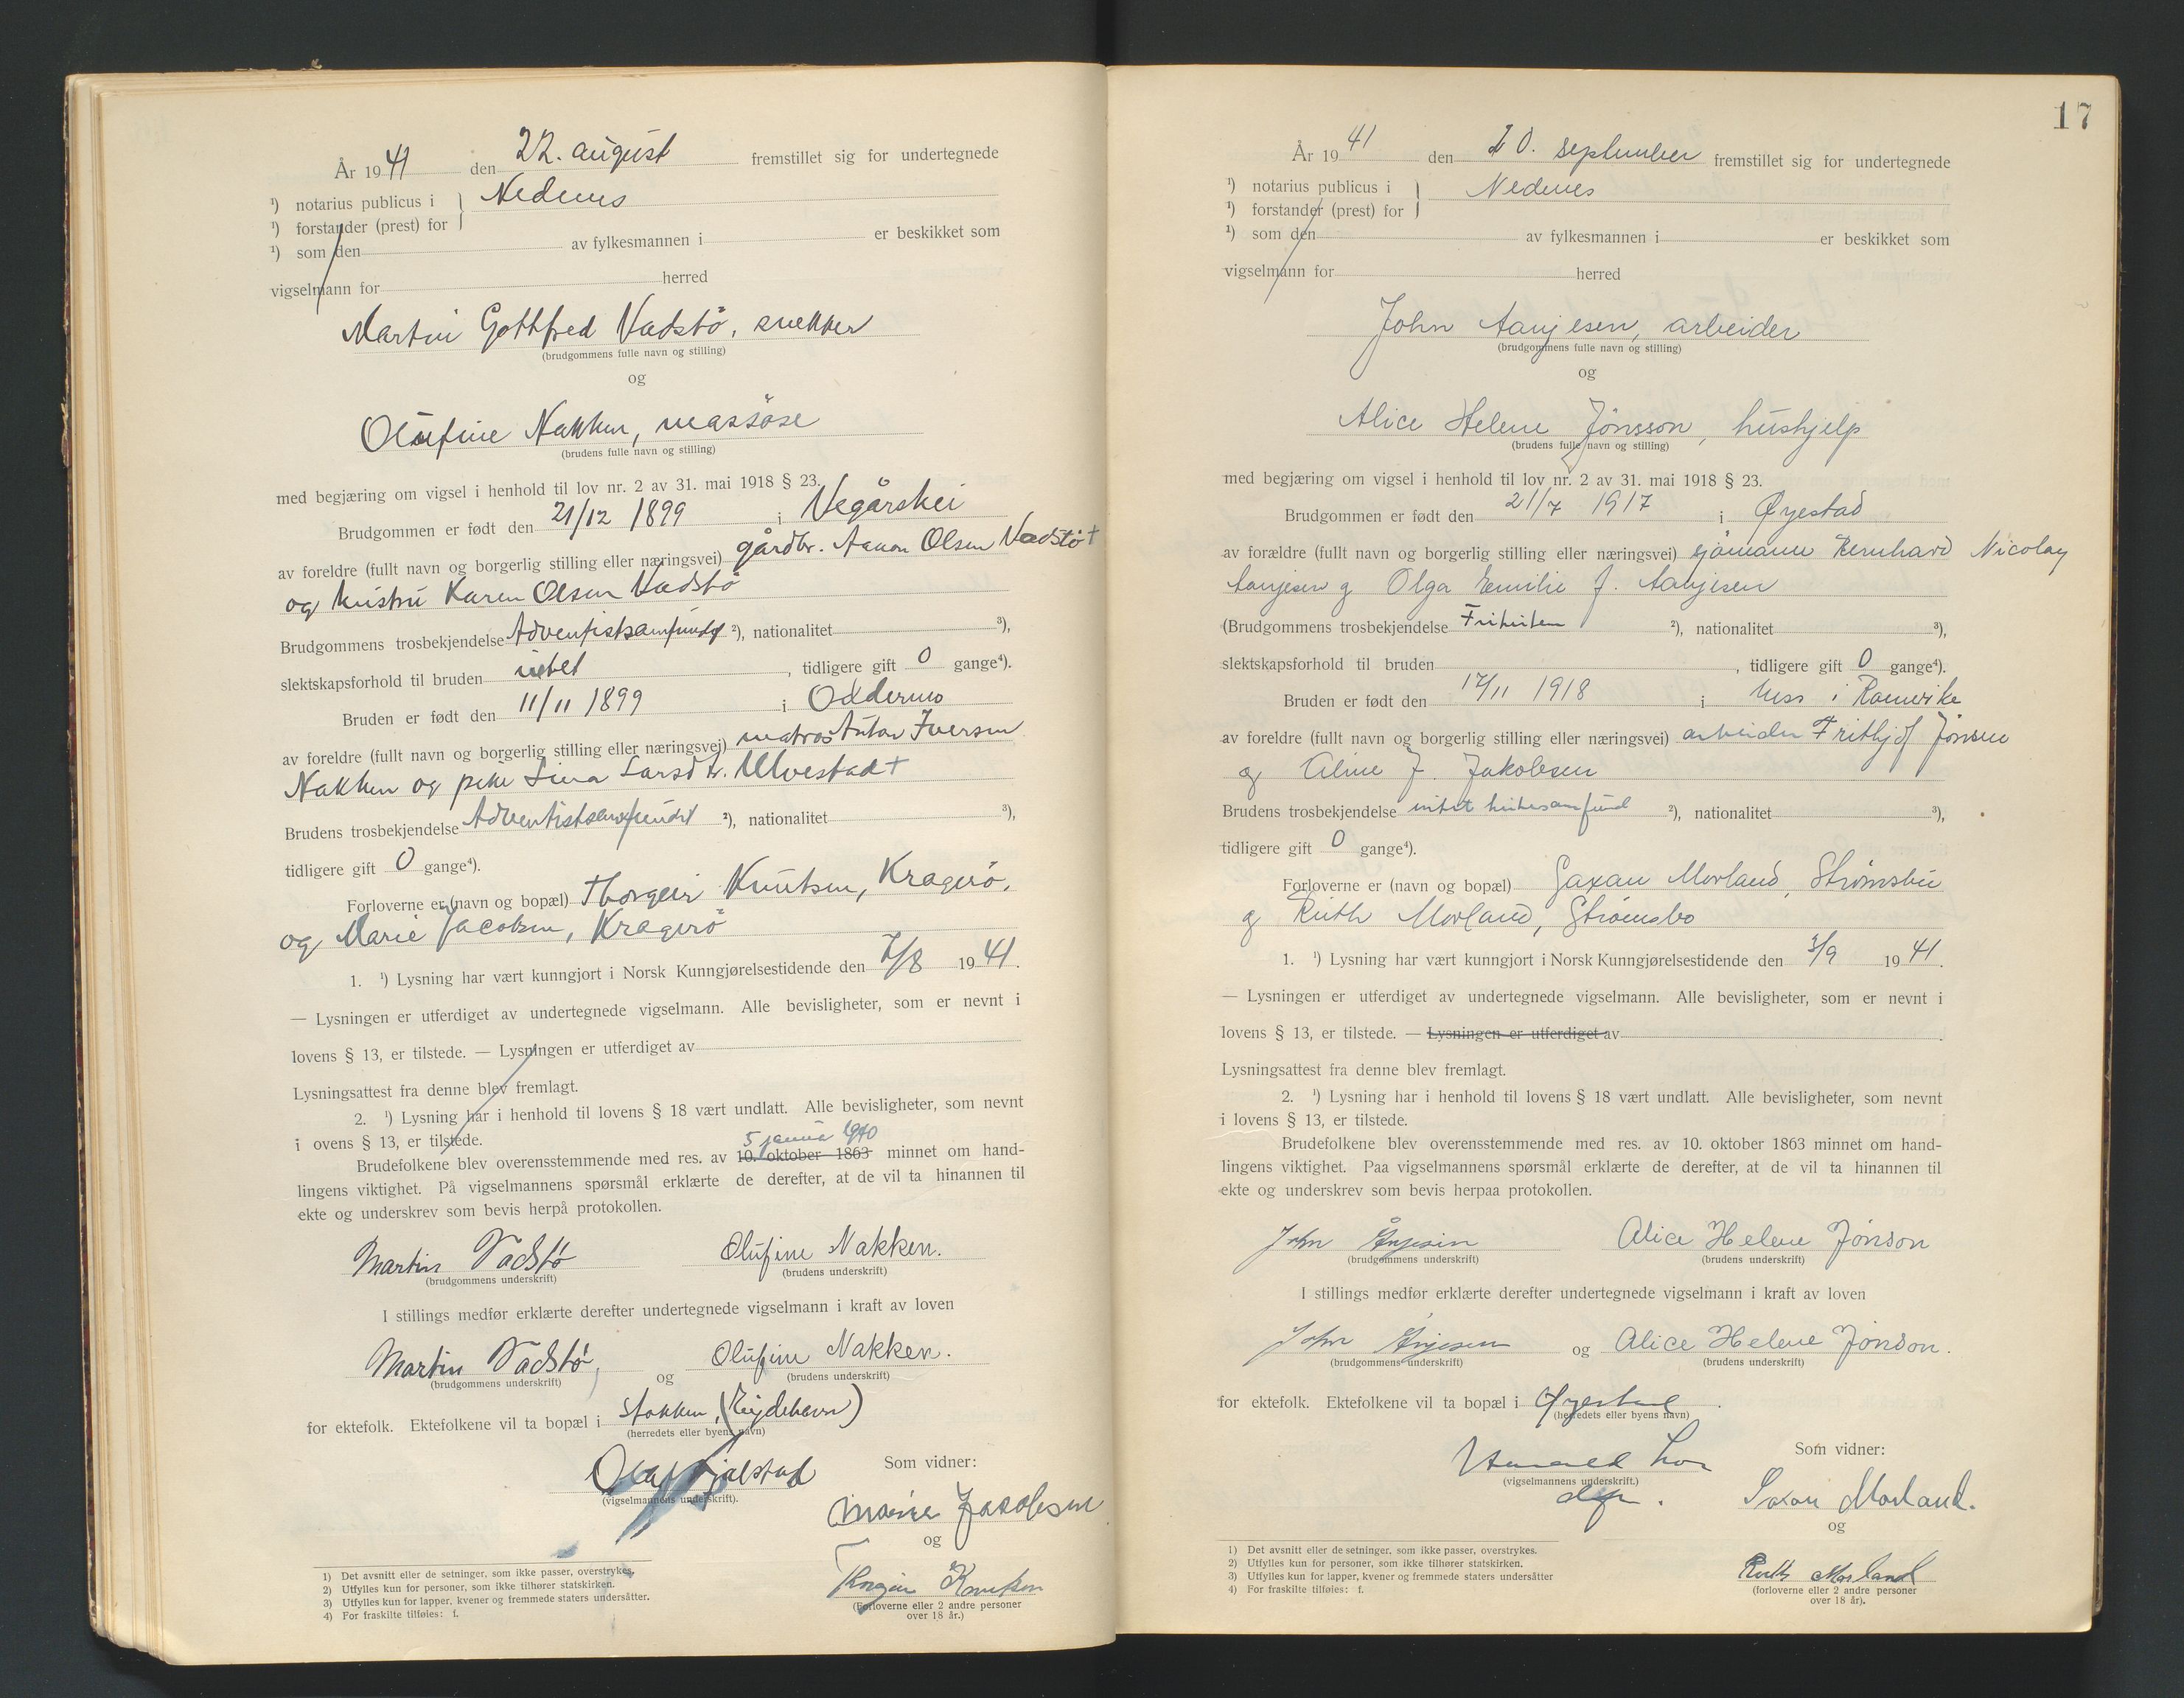 År 1941 den 22. august fremstillet sig for undertegnede
¹) notarius publicus i } Nedenes
¹) forstander (prest) for
¹) som den av fylkesmannen i er beskikket som
vigselmann for herred
Martin Gottfred Vadstö, snekker
(brudgommens fulle navn og stilling)
og
Olufine Nakken, massöse
(brudens fulle navn og stilling)
med begjæring om vigsel i henhold til lov nr. 2 av 31. mai 1918 § 23.
Brudgommen er født den 21/12 1899 i Vegårshei
av foreldre (fullt navn og borgerlig stilling eller næringsvei) gårdbr. Aanon Olsen Vadstö +
og hustru Karen Olsen Vadstö
Brudgommens trosbekjendelse Adventistsamfundet ²), nationalitet ³),
slektskapsforhold til bruden intet, tidligere gift 0 gange⁴).
Bruden er født den 11/11 1899 i Oddernes
av foreldre (fullt navn og borgerlig stilling eller næringsvei) matros Anton Iversen
Nakken og pike Lina Larsdtr. Ulvestad +
Brudens trosbekjendelse Adventistsamfundet ²), nationalitet ³),
tidligere gift 0 gange⁴).
Forloverne er (navn og bopæl) Thorgeir Knutsen, Kragerö,
og Marie Jacobsen, Kragerö
1. ¹) Lysning har vært kunngjort i Norsk Kunngjørelsestidende den 7/8 1941.
— Lysningen er utferdiget av undertegnede vigselmann. Alle bevisligheter, som er nevnt i
lovens § 13, er tilstede. — Lysningen er utferdiget av
Lysningsattest fra denne blev fremlagt.
2. ¹) Lysning har i henhold til lovens § 18 vært undlatt. Alle bevisligheter, som nevnt
i ovens § 13, er tilstede.
5 januar 1940
Brudefolkene blev overensstemmende med res. av 10. oktober 1863 minnet om hand-
lingens viktighet. På vigselmannens spørsmål erklærte de derefter, at de vil ta hinannen til
ekte og underskrev som bevis herpå protokollen.
Martin Vadstö Olufine Nakken.
(brudgommens underskrift) (brudens underskrift)
I stillings medfør erklærte derefter undertegnede vigselmann i kraft av loven
Martin Vadstö, og Olufine Nakken.
(brudgommens underskrift) (brudens underskrift)
for ektefolk. Ektefolkene vil ta bopæl i Stokken, (Eydehavn)
(herredets eller byens navn)
(vigselmannens underskrift).
Som vidner:
Marie Jacobsen
og
Thorgeir Knutsen
(Forloverne eller 2 andre personer
over 18 år.)
1) Det avsnitt eller de setninger, som ikke passer, overstrykes.
2) Utfylles kun for personer, som ikke tilhører statskirken.
3) Utfylles kun for lapper, kvener og fremmede staters undersåtter.
4) For fraskilte tilføies: f.
17
År 1941 den 20. september fremstillet sig for undertegnede
¹) notarius publicus i } Nedenes
¹) forstander (prest) for
¹) som den av fylkesmannen i er beskikket som
vigselmann for herred
John Aanjesen, arbeider
(brudgommens fulle navn og stilling)
og
Alice Helene Jönsson, hushjelp
(brudens fulle navn og stilling)
med begjæring om vigsel i henhold til lov nr. 2 av 31. mai 1918 § 23.
Brudgommen er født den 21/7 1917 i Øyestad
av forældre (fullt navn og borgerlig stilling eller næringsvei) sjömann Bernhard Nicolay
Aanjesen og Olga Emilie f. Aanjesen
(Brudgommens trosbekjendelse Frikirken ²), nationalitet ³),
slektskapsforhold til bruden , tidligere gift 0 gange⁴).
Bruden er født den 17/11 1918 i Ness i Romerike
av foreldre (fullt navn og borgerlig stilling eller næringsvei) arbeider Frithjof Jönsen
og Aline f. Jakobsen
Brudens trosbekjendelse intet kirkesamfund ²), nationalitet ³),
tidligere gift 0 gange⁴).
Forloverne er (navn og bopæl) Saxau Morland, Strömsbu
og Ruth Morland, Strömsbo
1. ¹) Lysning har vært kunngjort i Norsk Kunngjørelsestidende den 3/9 1941.
— Lysningen er utferdiget av undertegnede vigselmann. Alle bevisligheter, som er nevnt i
lovens § 13, er tilstede. — Lysningen er utferdiget av
Lysningsattest fra denne blev fremlagt.
2. ¹) Lysning har i henhold til lovens § 18 vært undlatt. Alle bevisligheter, som nevnt
i lovens § 13, er tilstede.
Brudefolkene blev overensstemmende med res. av 10. oktober 1863 minnet om hand-
lingens viktighet. Paa vigselmannens spørsmål erklærte de derefter, at de vil ta hinannen til
ekte og underskrev som bevis herpaa protokollen.
John Ånjesen Alice Helene Jönson
(brudgommens underskrift) (brudens underskrift)
I stillings medfør erklærte derefter undertegnede vigselmann i kraft av loven
John Ånjesen og Alice Helene Jönson.
(brudgommens underskrift) (brudens underskrift)
for ektefolk. Ektefolkene vil ta bopæl i Øyestad.
(herredets eller byens navn)
(vigselmannens underskrift.)
Som vidner:
Saxau Morland.
og
Ruth Morland
(forloverne eller 2 andre personer
over 18 år).
1) Det avsnitt eller de setninger, som ikke passer, overstrykes.
2) Utfylles kun for personer, som ikke tilhører statskirken.
3) Utfylles kun for lapper, kvener og fremmede staters undersåtter
4) For fraskilte tilføies: f.